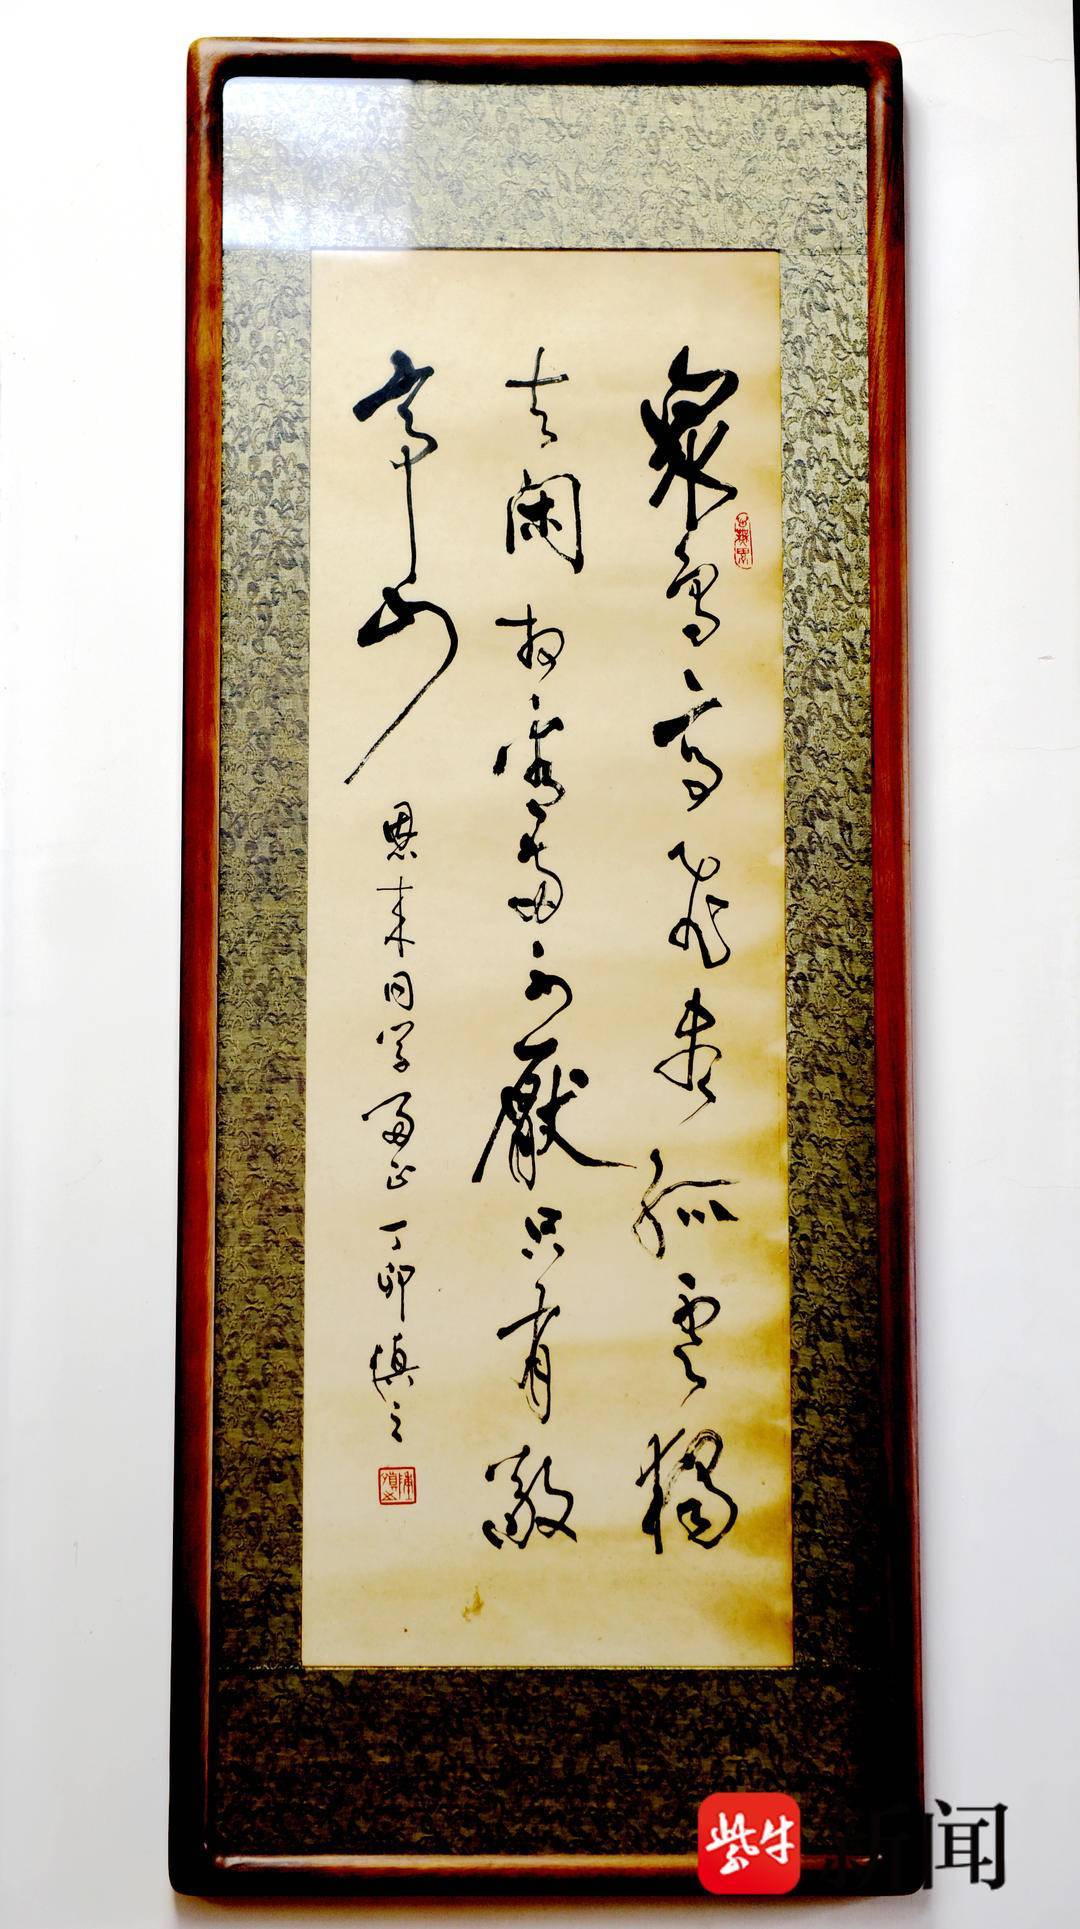 众鸟高飞尽孤云独
去闲相看两不厭只有敬
亭山
恩来同学留正 丁卯 慎之
陈慎之
紫牛新闻